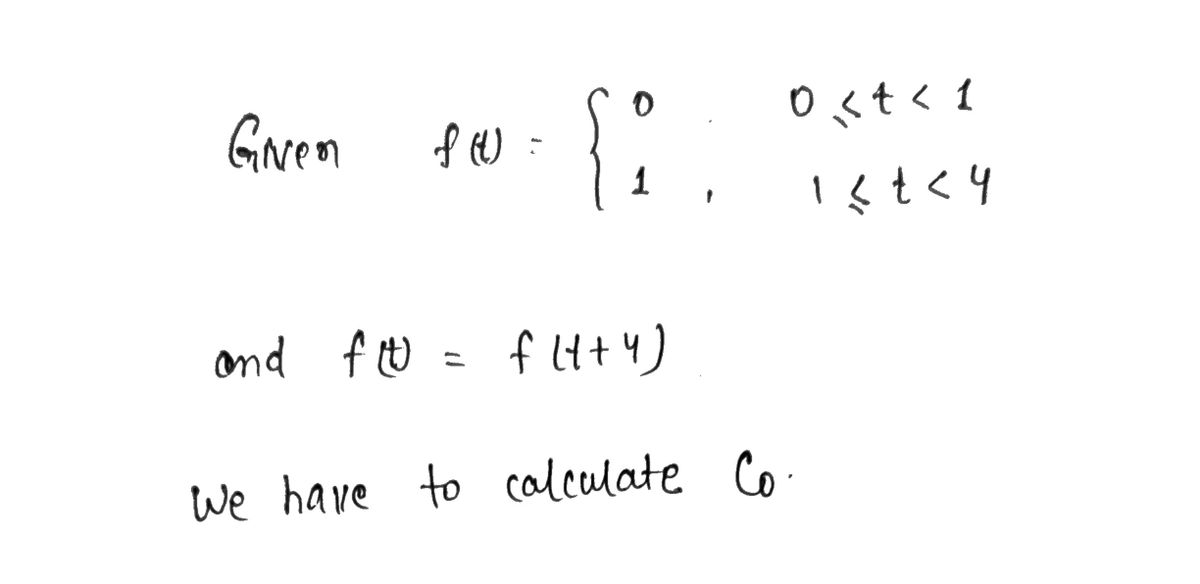 Given f(t) = { 0 , 0 ≤ t < 1
1 , 1 ≤ t < 4
and f(t) = f(t+4)
We have to calculate Co.